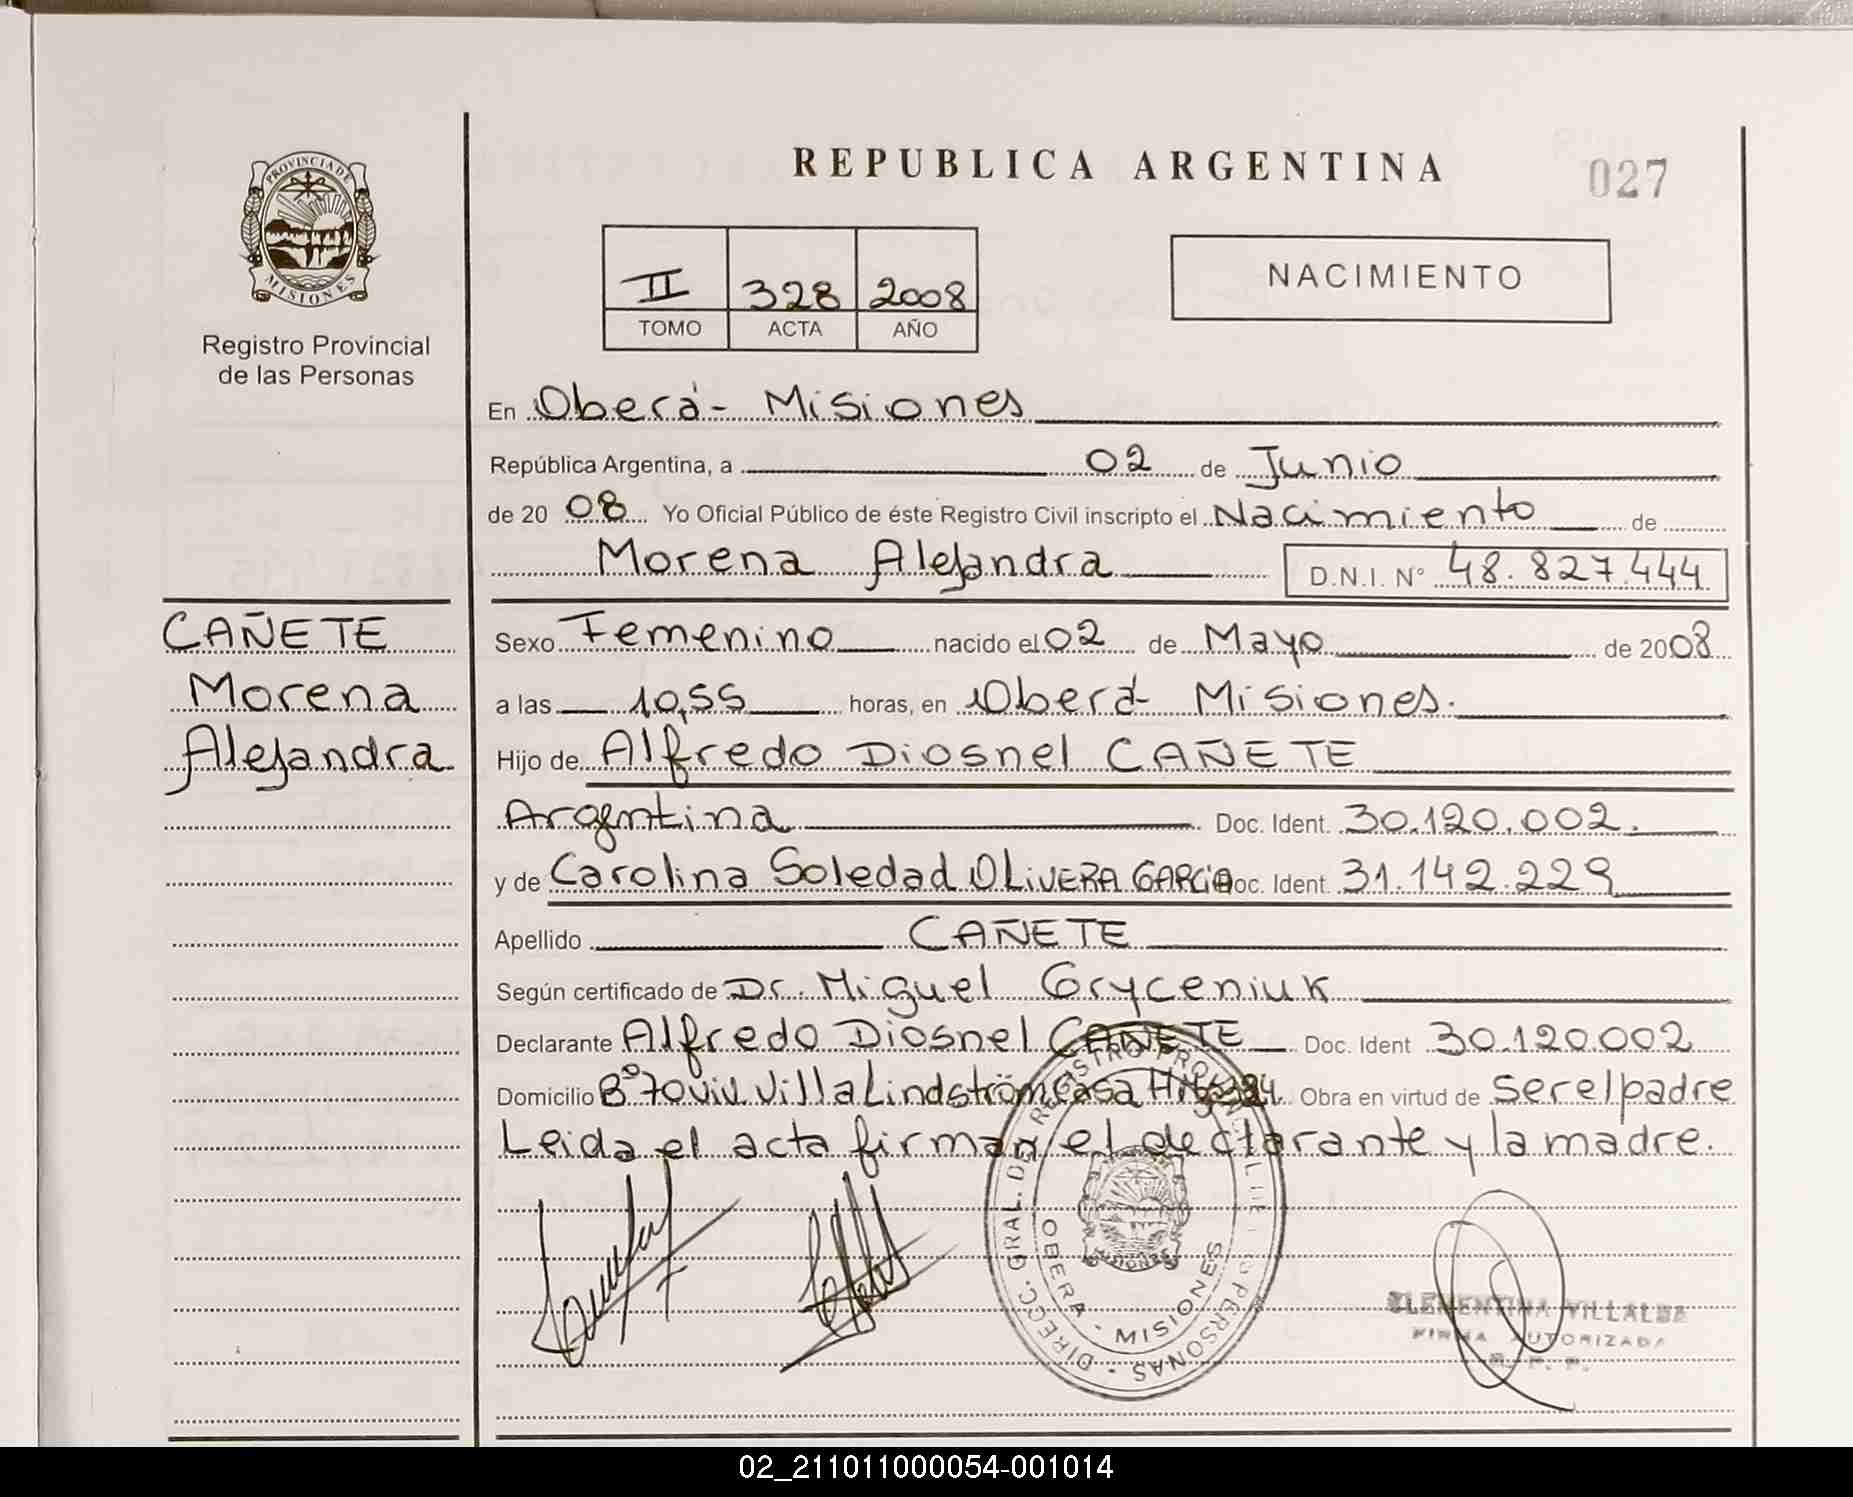 REPUBLICA ARGENTINA
027
PROVINCIA DE
MISIONES
Registro Provincial
de las Personas
II 328 2008
TOMO ACTA AÑO
NACIMIENTO
En Oberá - Misiones
República Argentina, a 02 de Junio
de 20 08 Yo Oficial Público de éste Registro Civil inscripto el Nacimiento de
Morena Alejandra D.N.I. Nº 48.827.444
CAÑETE
Morena
Alejandra
Sexo Femenino nacido el 02 de Mayo de 2008
a las 10,55 horas, en Oberá - Misiones.
Hijo de Alfredo Diosnel CAÑETE
Argentina Doc. Ident. 30.120.002.
y de Carolina Soledad OLIVERA GARCIA Doc. Ident 31.142.229
Apellido CAÑETE
Según certificado de Dr. Miguel Gryceniuk
Declarante Alfredo Diosnel CAÑETE Doc. Ident 30.120.002
Domicilio Bº 70 viv Villa Lindström Casa Obra en virtud de ser el padre
Leida el acta firman el declarante y la madre.
DIRECC. GRAL. DE REGISTRO PROVINCIAL DE PERSONAS
OBERA - MISIONES
CLEMENTINA VILLALBA
FIRMA AUTORIZADA
R. P. P.
02_211011000054-001014